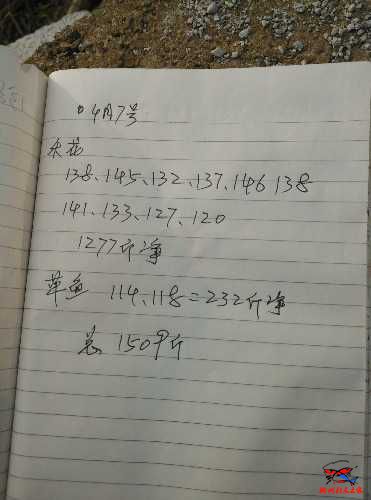 4月7号
水花
138、145、132、137、146 138
141、133、127、120
1277斤净
草鱼 114、118=232斤净
总 1509斤